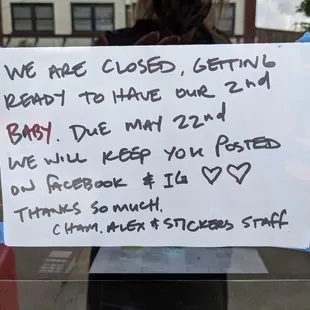 WE ARE CLOSED, GETTING
READY TO HAVE OUR 2nd
BABY. DUE MAY 22nd
WE WILL KEEP YOU POSTED
ON FACEBOOK & IG ♡♡
THANKS SO MUCH.
CHAM, ALEX & STICKERS STAFF